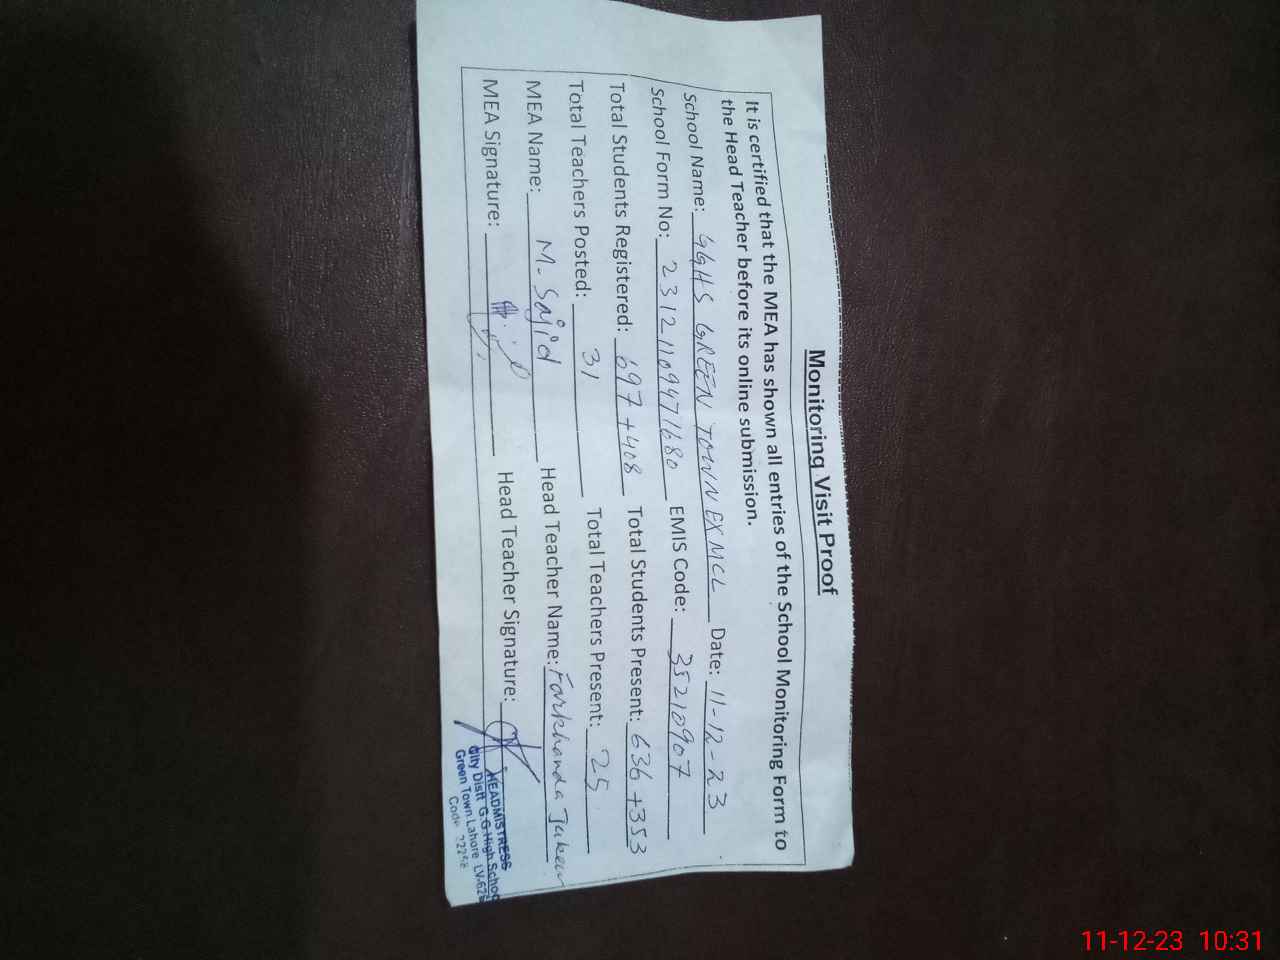 Monitoring Visit Proof
It is certified that the MEA has shown all entries of the School Monitoring Form to
the Head Teacher before its online submission.
School Name: GGHS GREEN TOWN EX MCL Date: 11-12-23
School Form No: 23121109471680 EMIS Code: 35210907
Total Students Registered: 697+408 Total Students Present: 636+353
Total Teachers Posted: 31 Total Teachers Present: 25
MEA Name: M. Sajid Head Teacher Name: Farkhanda
MEA Signature: Head Teacher Signature:
HEADMISTRESS
City Distt G.G.High School
Green Town Lahore
Code
11-12-23 10:31